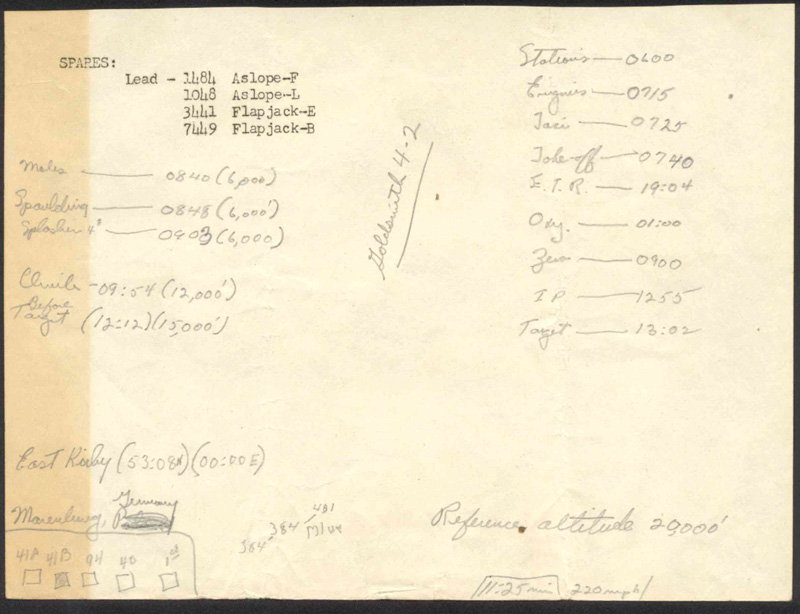 SPARES:
Lead - 1484 Aslope-F
1048 Aslope-L
3441 Flapjack-E
7449 Flapjack-B
Stations — 0600
Engines — 0715
Taxi — 0725
Take-off — 0740
E.T.R. — 19:04
Oxy. — 01:00
Zero — 0900
IP — 1255
Target — 13:02
Goldsmith 4-2
Moles — 0840 (6,000)
Spaulding — 0848 (6,000')
Splasher 4" — 0903 (6,000)
Climb - 09:54 (12,000')
Before
Target (12:12) (15,000')
East Kirby (53:08N) (00:00E)
Marienburg, Germany
Reference altitude 29,000'
384
384
401
41A 41B 94 40 1st
11-25 min 220 mph